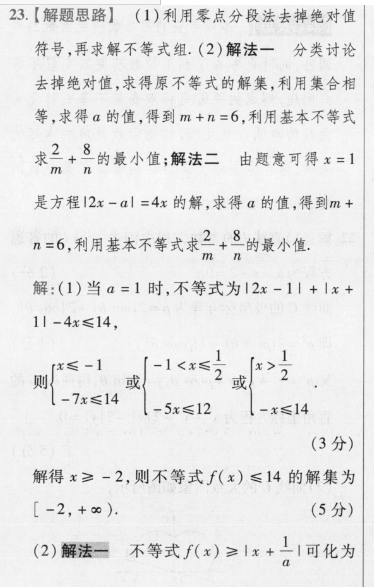 23.【解题思路】 (1)利用零点分段法去掉绝对值
符号,再求解不等式组.(2)解法一 分类讨论
去掉绝对值,求得原不等式的解集,利用集合相
等,求得a的值,得到m+n=6,利用基本不等式
求2/m+8/n的最小值;解法二 由题意可得x=1
是方程|2x-a|=4x的解,求得a的值,得到m+
n=6,利用基本不等式求2/m+8/n的最小值.
解:(1)当a=1时,不等式为|2x-1|+|x+
1|-4x≤14,
则{x≤-1 -7x≤14 或{-1<x≤1/2 -5x≤12 或{x>1/2 -x≤14
(3分)
解得x≥-2,则不等式f(x)≤14的解集为
[-2,+∞). (5分)
(2)解法一 不等式f(x)≥|x+1/a|可化为